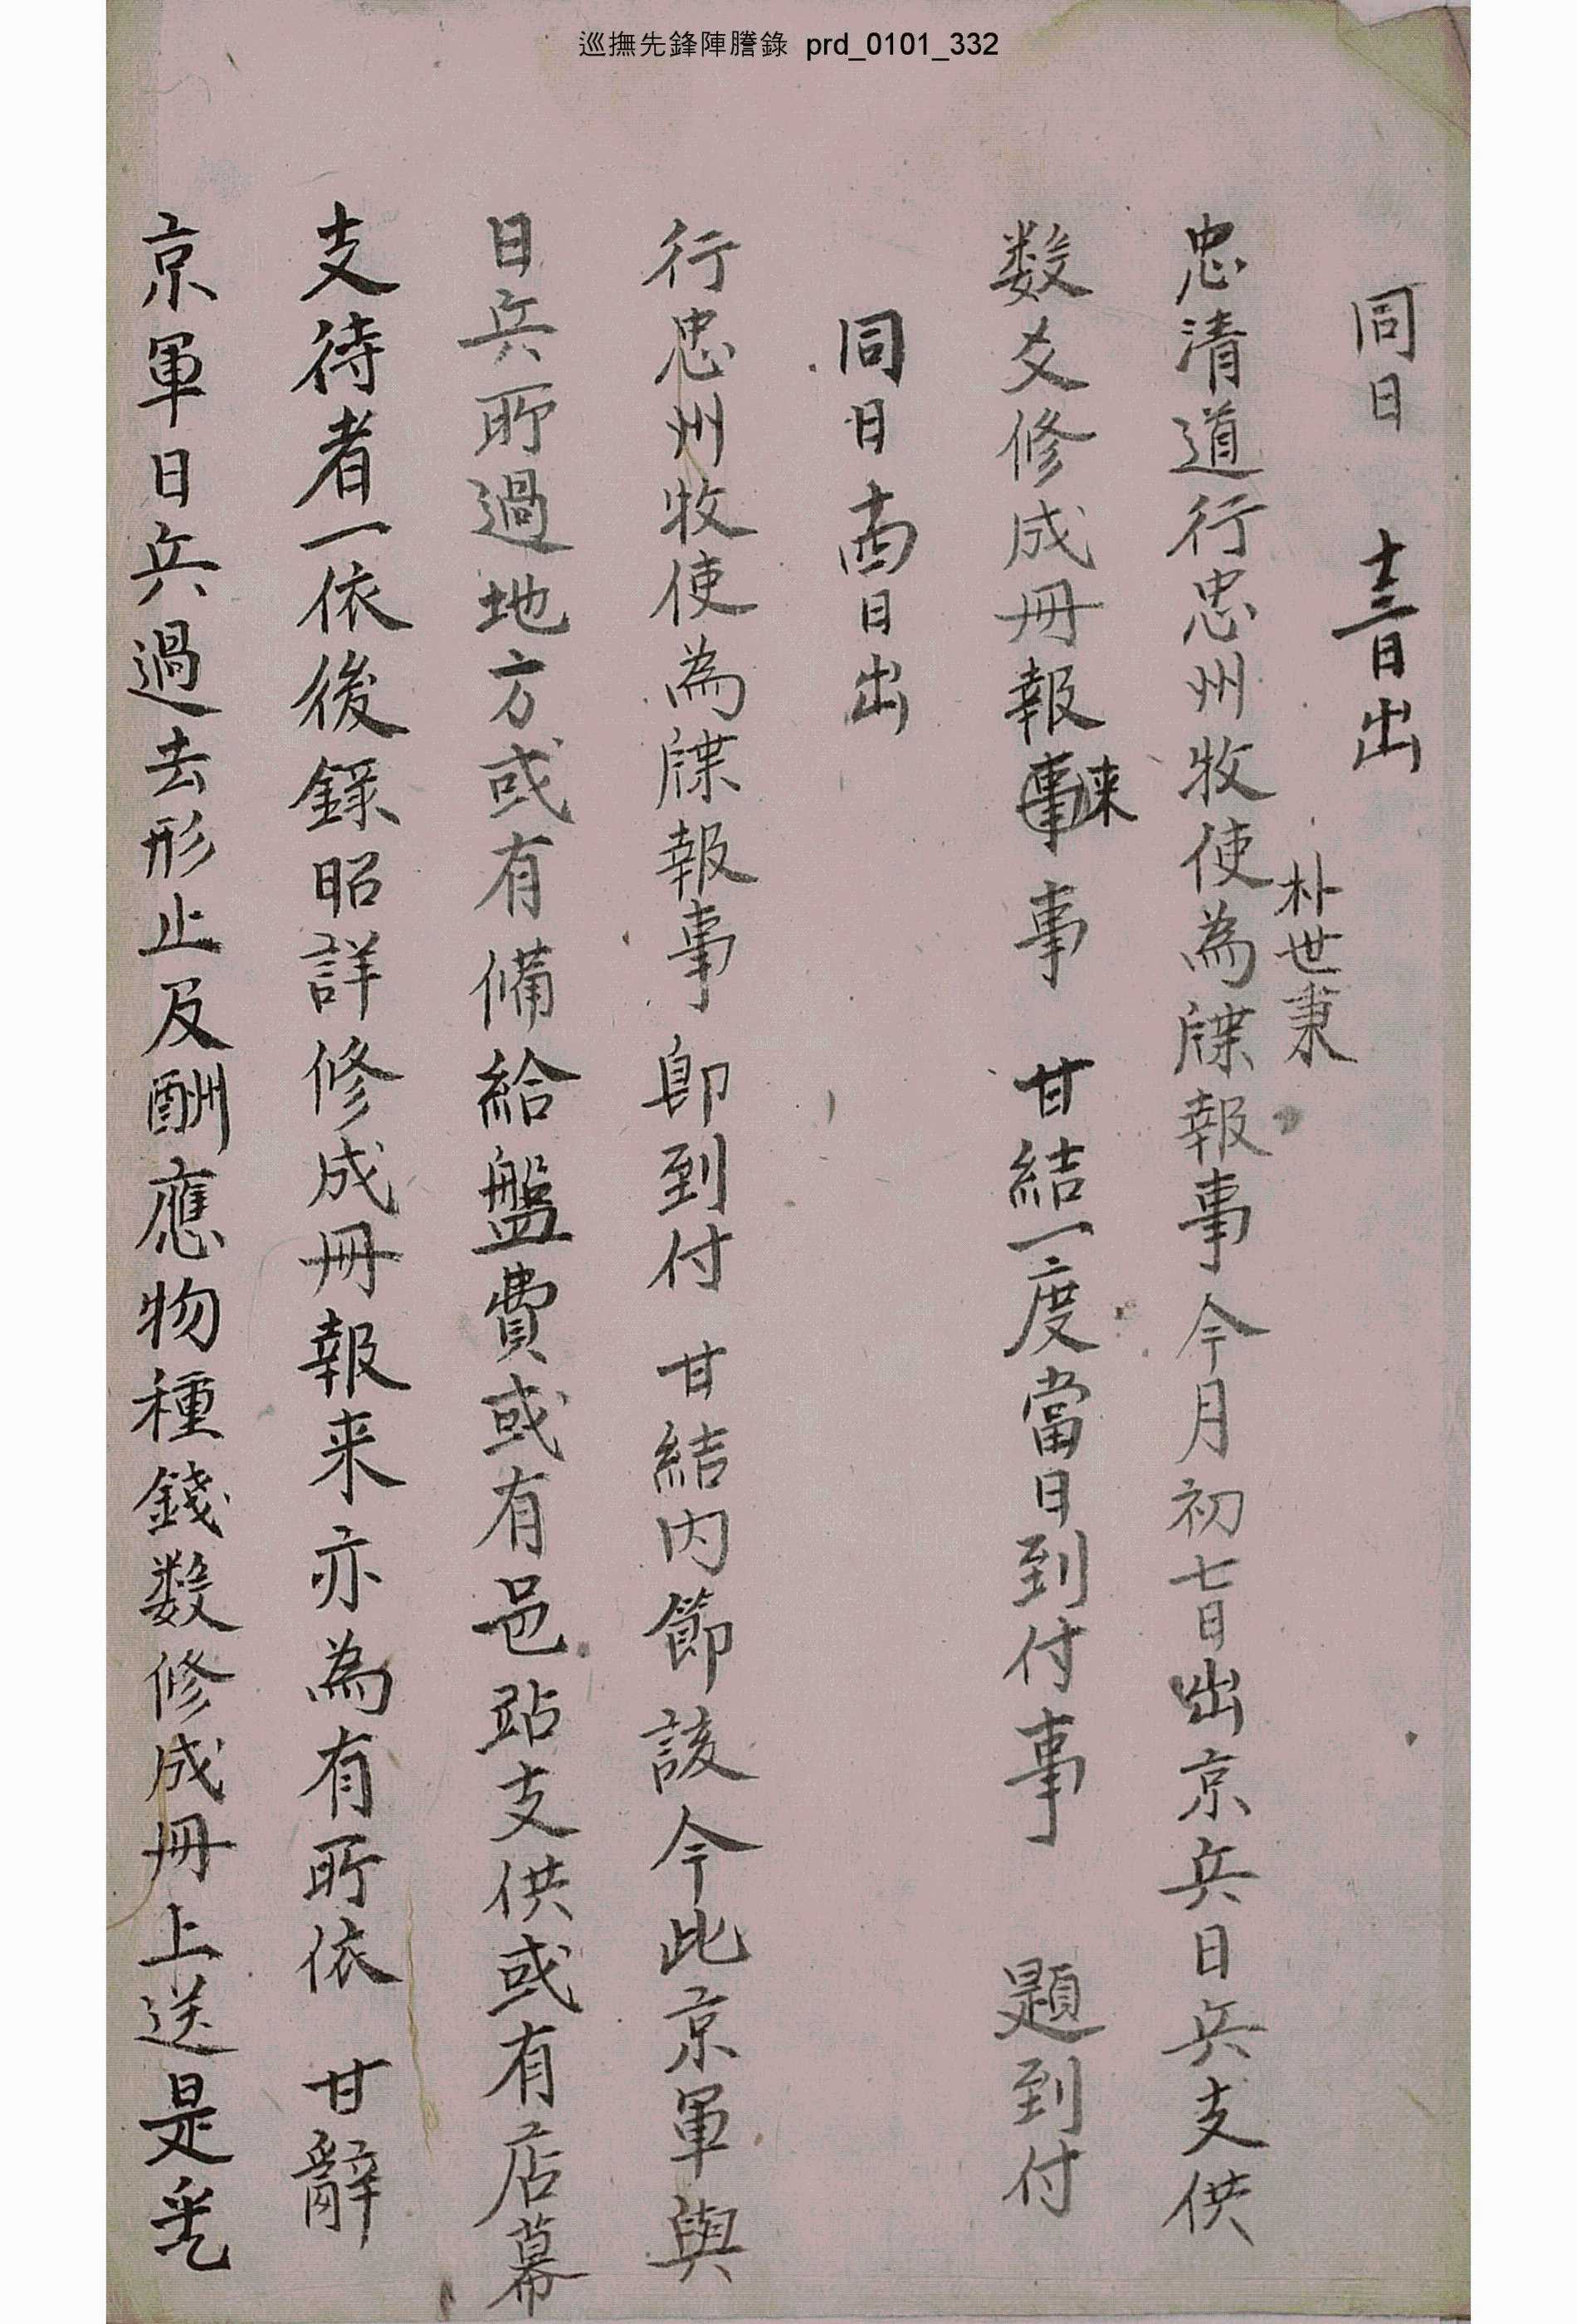 巡撫先鋒陣謄錄 prd_0101_332
同日 十三日出
朴世秉
忠清道行忠州牧使為牒報事今月初七日出京兵日兵支供
数爻修成冊報事来事 甘結一度當日到付事 題到付
同日十四日出
行忠州牧使為牒報事卽到付 甘結内節該今此京軍與
日兵所過地方或有備給盤費或有邑站支供或有店幕
支待者一依後錄昭詳修成冊報来亦為有所依 甘辭
京軍日兵過去形止及酬應物種錢数修成冊上送是乎